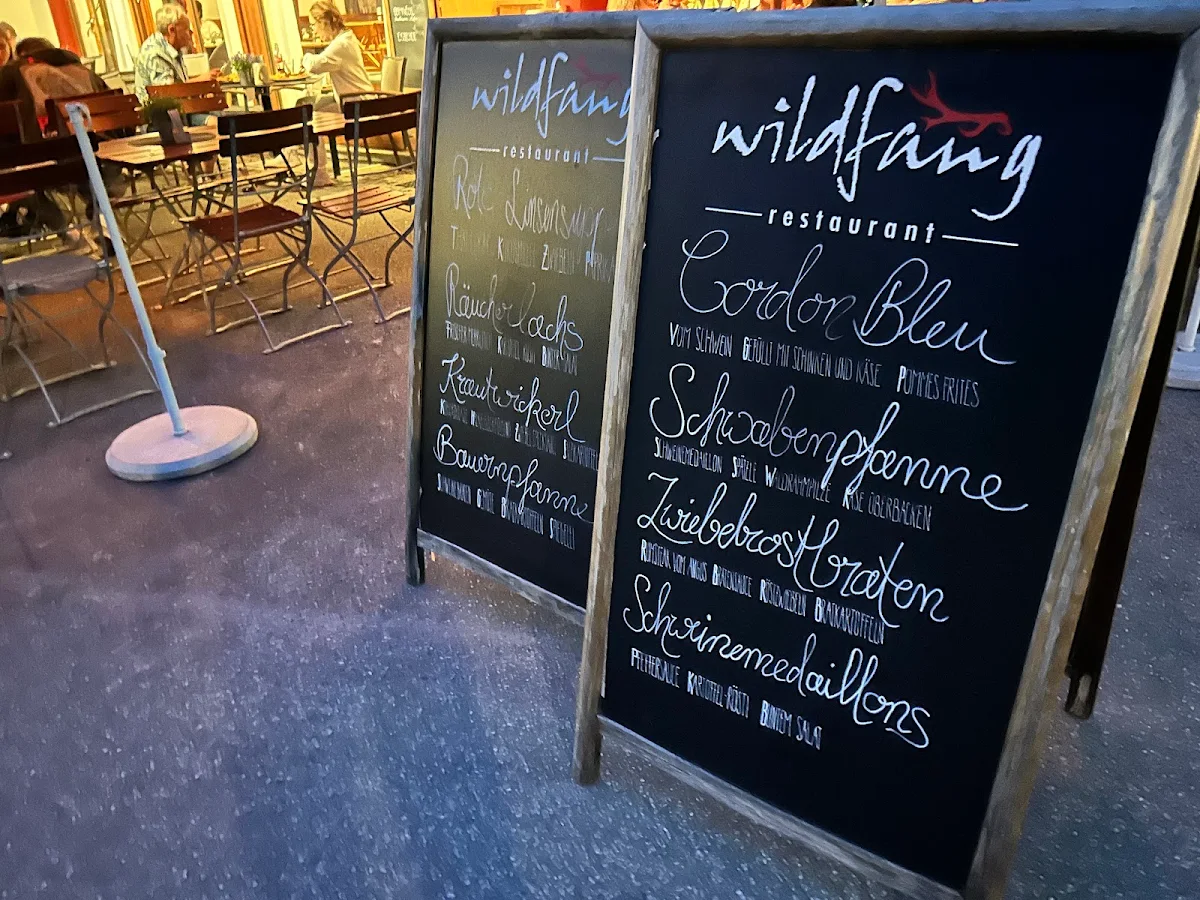 wildfang
restaurant
Rote Linsensupp
Räucherlachs
Krautwickerl
Bauernpfanne
Gemüse Bratkartoffeln Spiegelei
wildfang
restaurant
Cordon Bleu
Vom Schwein Gefüllt mit Schinken und Käse Pommes frites
Schwabenpfanne
Schweinemedaillon Spätzle Waldrahmpilze Käse überbacken
Zwiebelrostbraten
Rumsteak vom Angus Bratensauce Röstzwiebeln Bratkartoffeln
Schweinemedaillons
Pfeffersauce Kartoffel-Rösti Buntem Salat